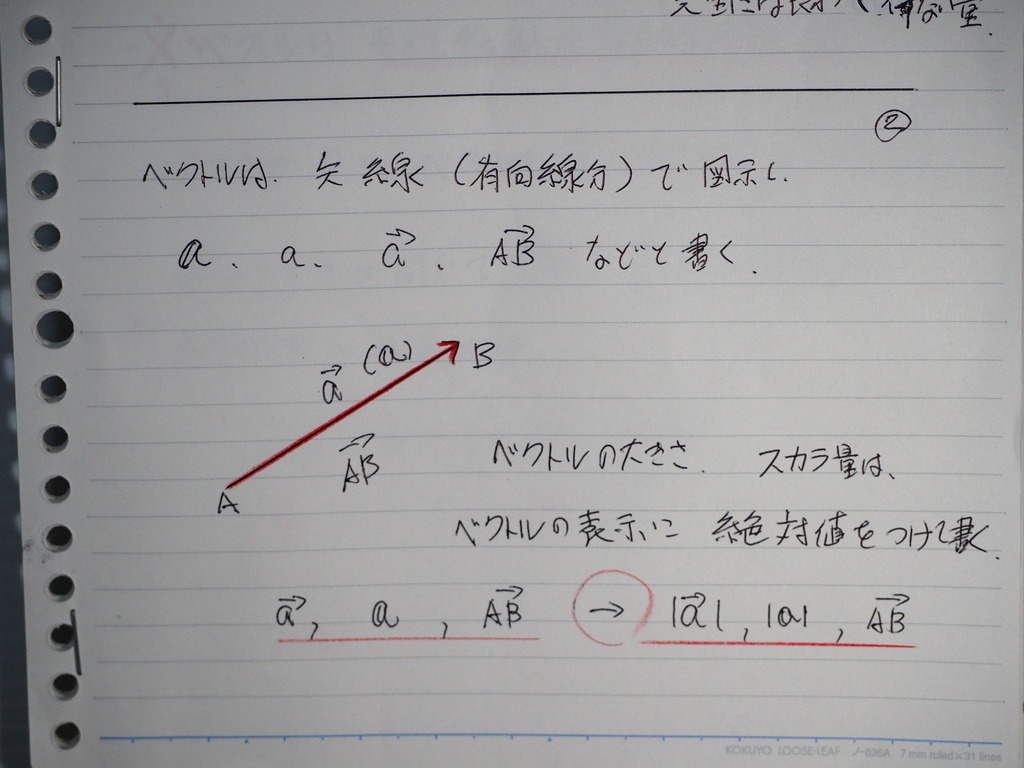 ②
ベクトルは、矢線(有向線分)で図示し、
𝕒、a、a⃗、A⃗B⃗ などと書く。
a⃗ (𝕒) B
A⃗B⃗
A
ベクトルの大きさ、スカラ量は、
ベクトルの表示に 絶対値をつけて書く。
a⃗, 𝕒, A⃗B⃗ → |a⃗|, |𝕒|, A⃗B⃗
KOKUYO LOOSE-LEAF ノ-836A 7 mm ruled×31 lines